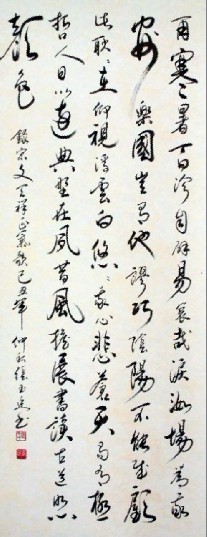 再寒暑百沴自辟易哀哉沮洳場為我
安樂國豈有他謬巧陰陽不能賊顧
此耿〻在仰視浮雲白悠〻我心悲蒼天曷有極
哲人日以遠典型在夙昔風檐展書讀古道照
顏色
錄宋文天祥正氣歌己丑年仲秋張玉書